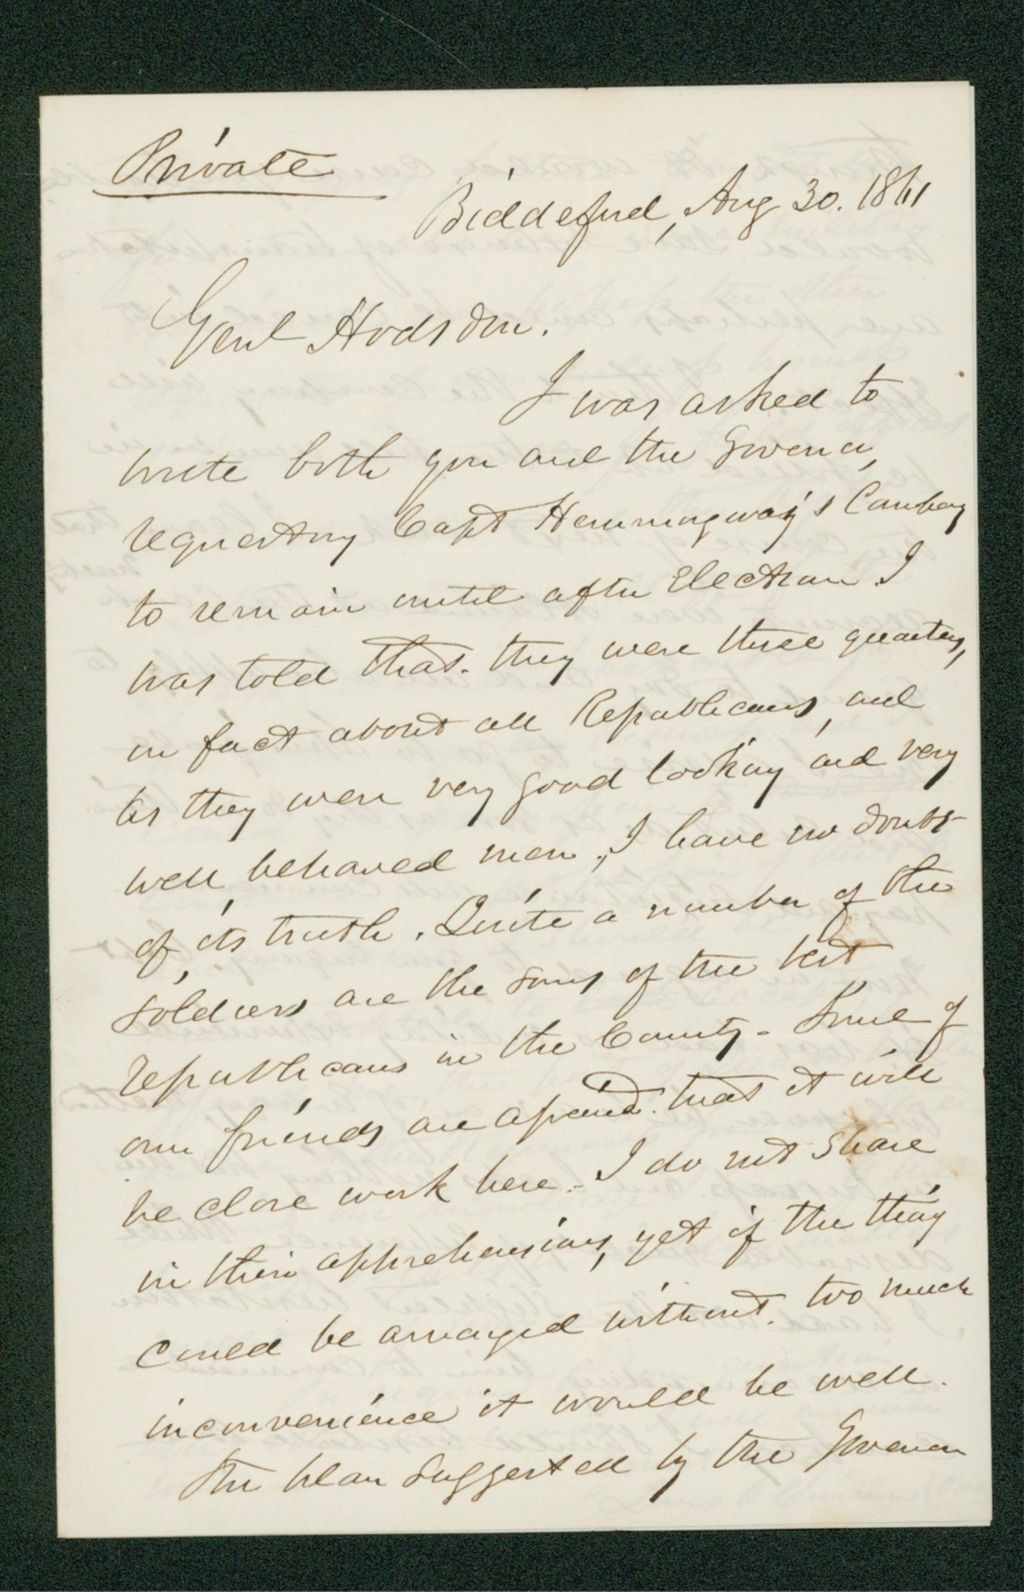 Private
Biddeford, Aug 30. 1861
Genl Hodsdon.
I was asked to
write both you and the Governor,
requesting Capt Hemmingway's Company
to remain until after Election I
was told that they were three quarters,
in fact about all Republicans, and
as they were very good looking and very
well behaved men, I have no doubt
of its truth. Quite a number of the
soldiers are the sons of the best
republicans in the County. Some of
our friends are afraid that it will
be close work here. I do not share
in their apprehensions, yet if the thing
could be arranged without too much
inconvenience it would be well.
The plan suggested by the Governor